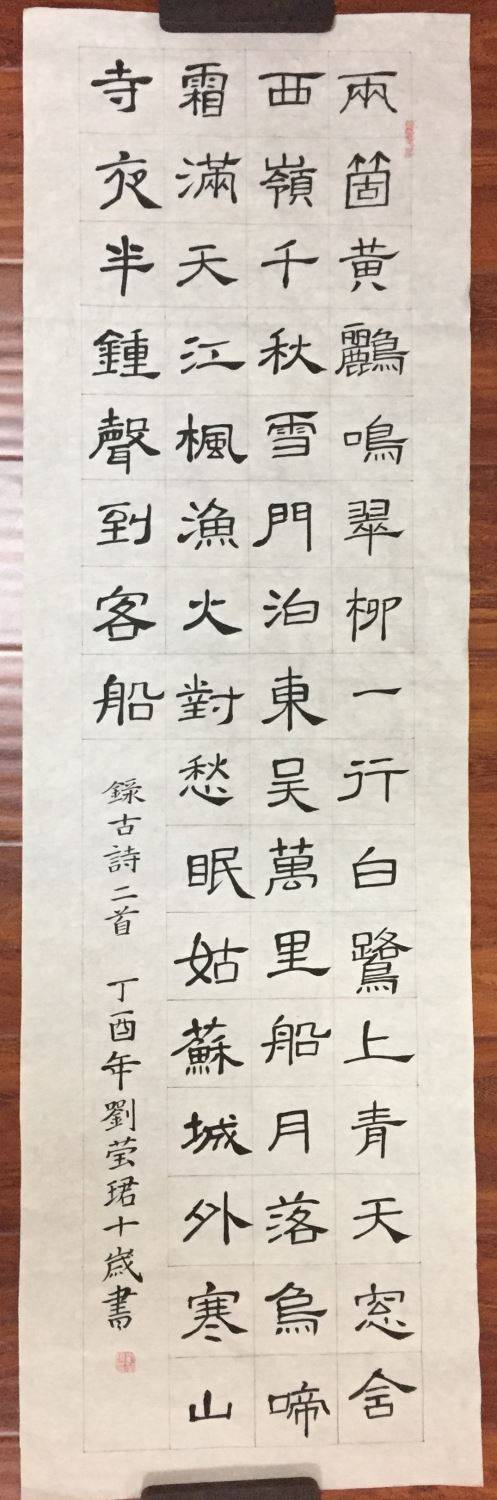 兩箇黃鸝鳴翠柳一行白鷺上青天窓含
西嶺千秋雪門泊東吳萬里船月落烏啼
霜滿天江楓漁火對愁眠姑蘇城外寒山
寺夜半鍾聲到客船
錄古詩二首 丁酉年劉莹珺十歲書